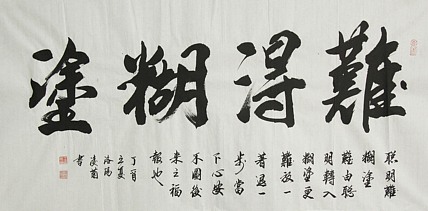 難得糊塗
聰明難
糊塗
難由聰
明轉入
糊塗更
難放一
著退一
步當
下心安
不圖後
來之福
報也
丁酉
立夏
洛陽
書